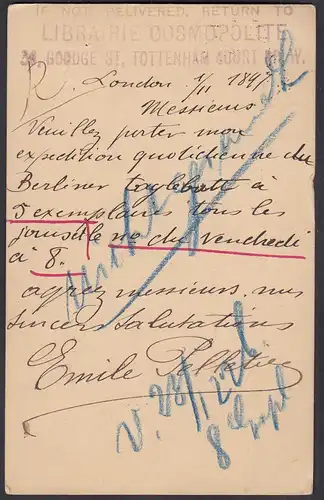 IF NOT DELIVERED, RETURN TO
LIBRAIRIE COSMOPOLITE
GOODGE ST, TOTTENHAM COURT RD. W.
R. London 1/11 1897
Messieurs
Veuillez porter mon
expedition quotidienne du
Berliner Tageblatt à
5 exemplaires tous les
jours & le no du vendredi
à 8.
agréez messieurs, mes
sincères salutations
Emile Pelletier
8